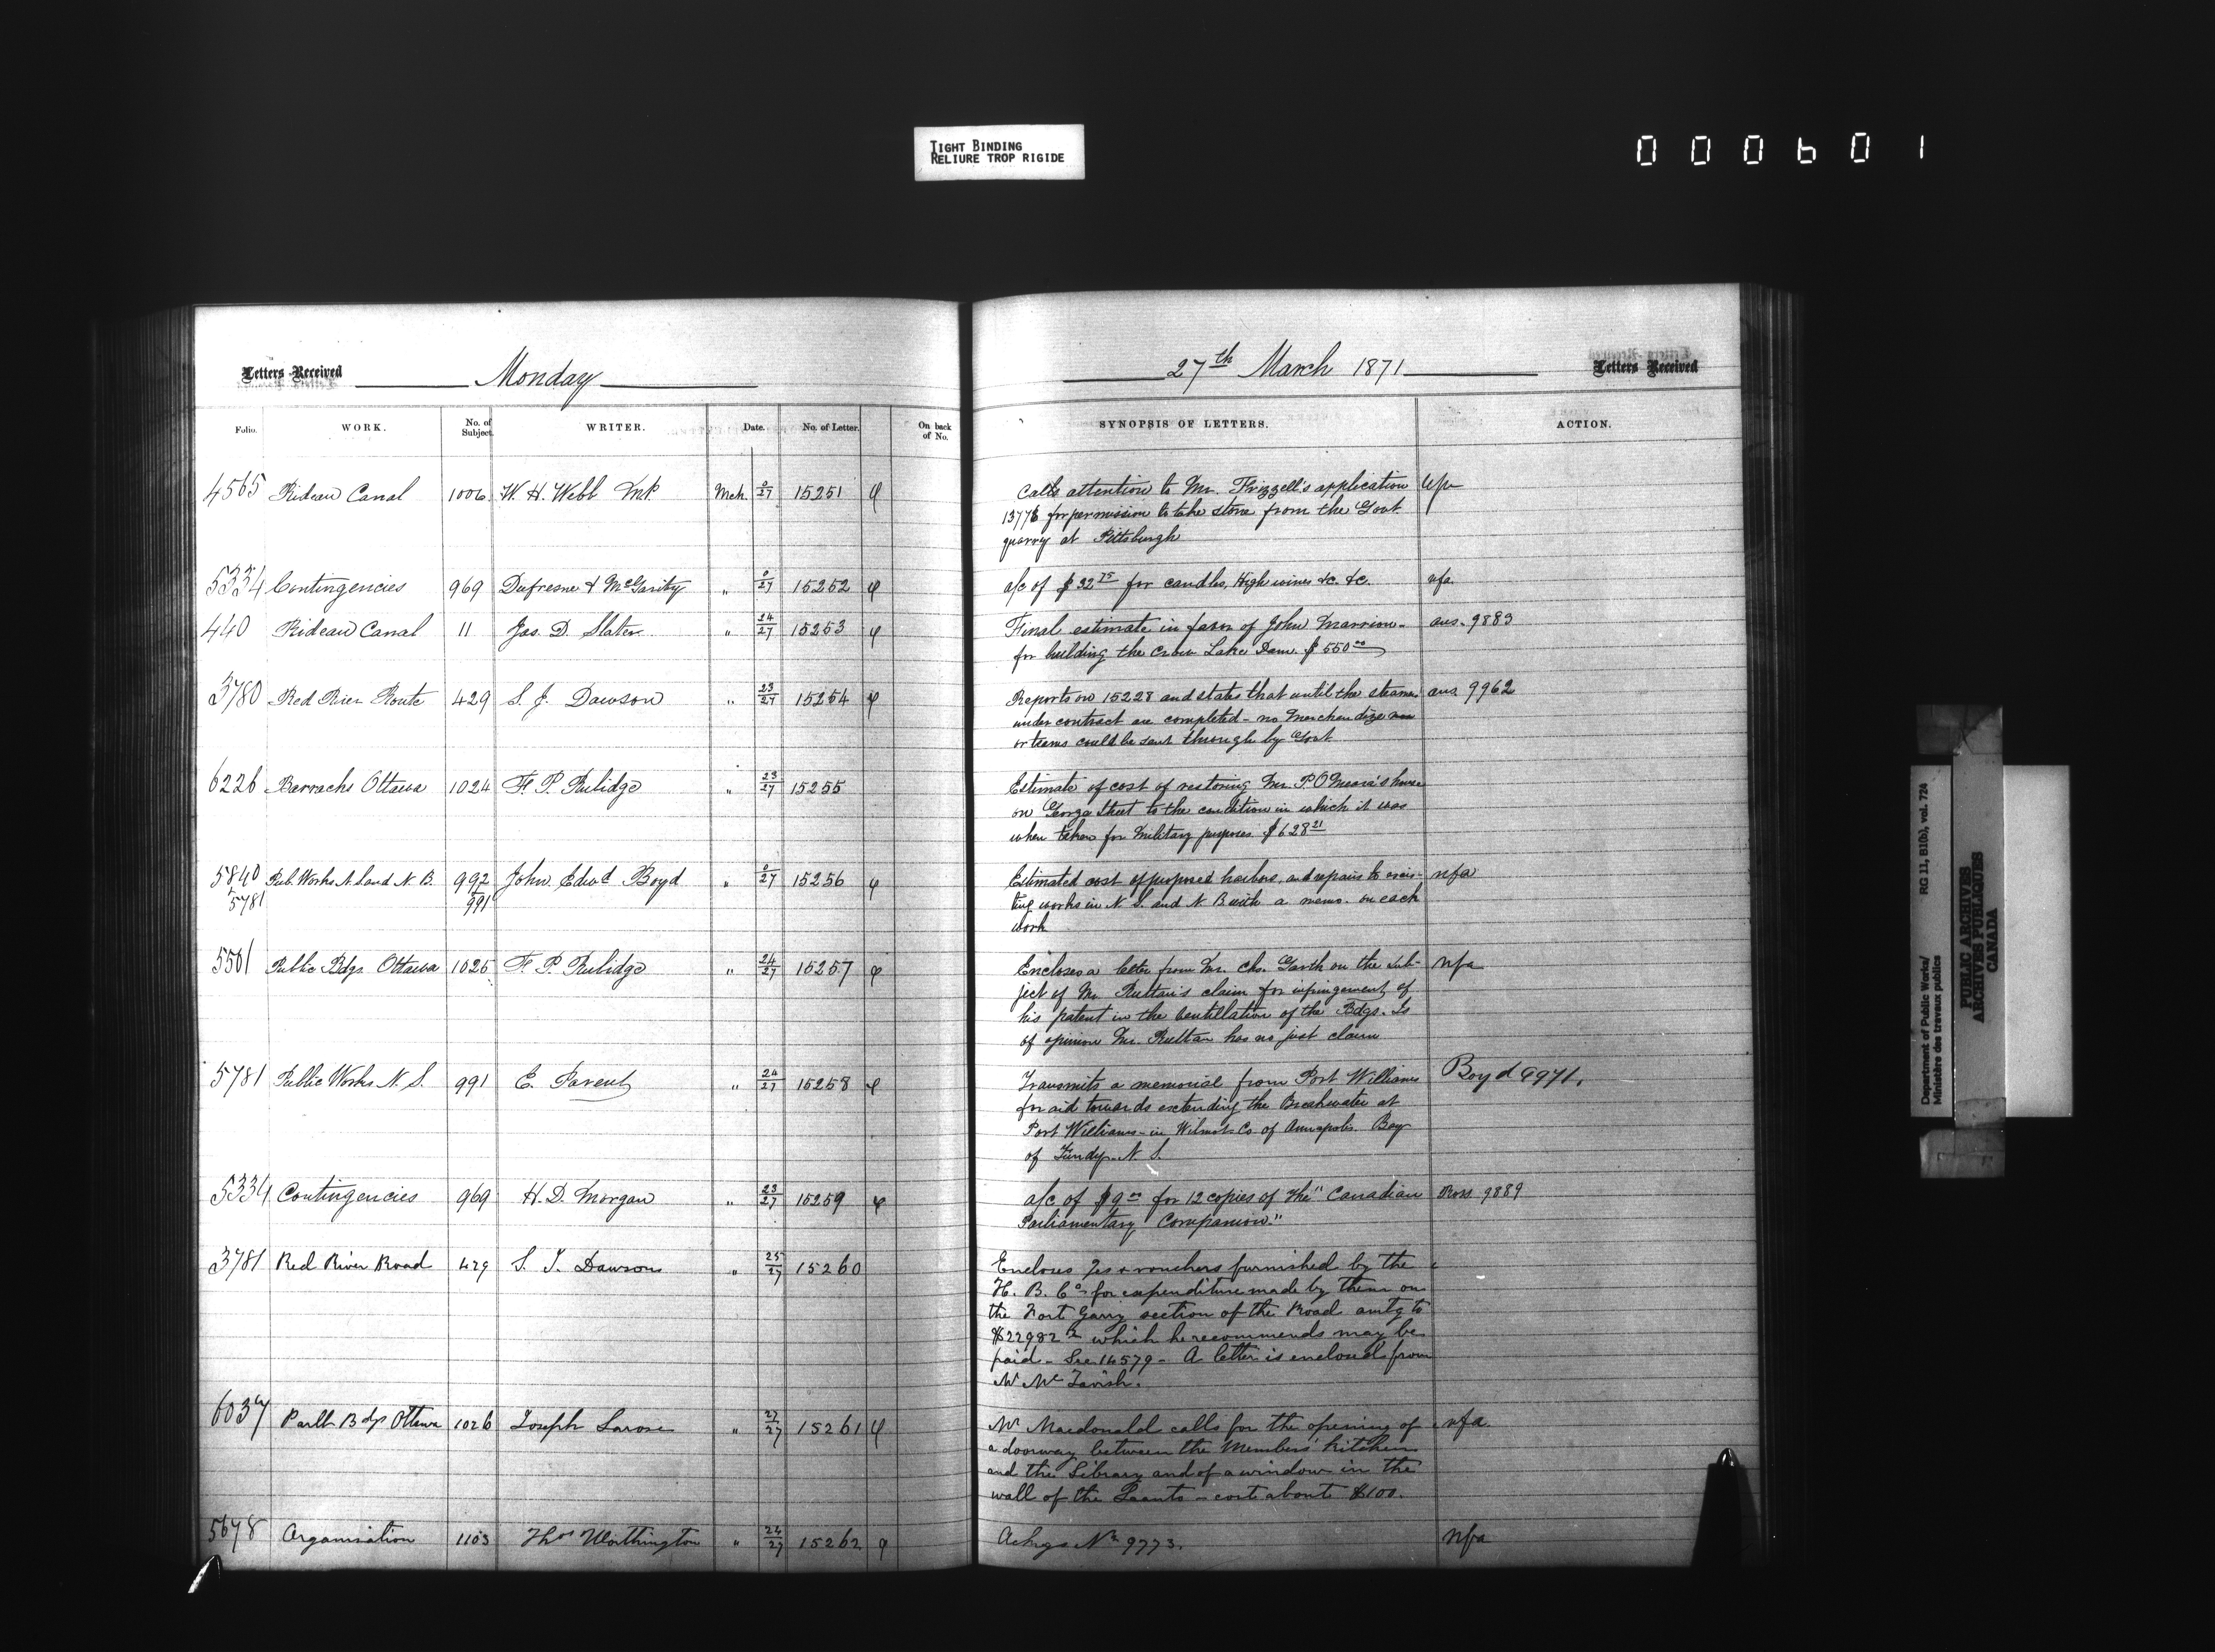 TIGHT BINDING
RELIURE TROP RIGIDE
000601
Letters Received
Monday
27th March 1871
Letters Received
Folio.
WORK.
No. of Subject.
WRITER.
Date.
No. of Letter.
On back of No.
SYNOPSIS OF LETTERS.
ACTION.
4565 Rideau Canal 1006 W. H. Webb MP Mch 0/27 15251 φ
Calls attention to Mr. Frizzell's application
13776 for permission to take stone from the Govt
quarry at Pittsburgh
5334 Contingencies 969 Dufresne & McGarity " 0/27 15252 φ a/c of $32 75 for candles, High wines &c. &c. nfa
440 Rideau Canal 11 Jas. D. Slater " 24/27 15253 φ Final estimate in favor of John Marrion ans. 9883
for building the Crow Lake Dam. $550 00
3780 Red River Route 429 S. J. Dawson " 23/27 15254 φ Reports on 15228 and states that until the steamers ans 9962
under contract are completed - no Merchandize
or teams could be sent through by Govt.
6226 Barracks Ottawa 1024 F. P. Rubidge " 23/27 15255 Estimate of cost of restoring Mr. P. O'Meara's house
on George Street to the condition in which it was
when taken for Military purposes $628 21
5840 Pub. Works N. S. and N. B. 992 John Edwd Boyd " 0/27 15256 φ Estimated cost of proposed harbors, and repairs to exis- nfa
5781 991 ting works in N. S. and N. B with a memo. on each
work
5501 Public Bdgs. Ottawa 1025 F. P. Rubidge " 24/27 15257 φ Encloses a letter from Mr. Chs. Garth on the sub- nfa
ject of Mr Ruttan's claim for infringement of
his patent in the Ventillation of the Bdgs. Is
of opinion Mr. Ruttan has no just claim
5781 Public Works N. S. 991 E. Parent " 24/27 15258 φ Transmits a memorial from Port Williams Boyd 9971.
for aid towards extending the Breakwater at
Port Williams - in Wilmot Co. of Annapolis. Bay
of Fundy. N. S.
5334 Contingencies 969 H. D. Morgan " 23/27 15259 φ a/c of $9 00 for 12 copies of The "Canadian Ross 9889
Parliamentary Companion."
3781 Red River Road 429 S. J. Dawson " 25/27 15260 Encloses a/cs & vouchers furnished by the
H. B. Co. for expenditure made by them on
the Fort Garry section of the Road amtg to
$22982 which he recommends may be
paid - See 14579 - A letter is enclosed from
Mr McTavish.
6037 Parlt Bdgs Ottawa 1026 Joseph Larose " 27/27 15261 φ Mr Macdonald calls for the opening of nfa.
a doorway between the Members' kitchen
and the Library and of a window in the
wall of the - cost about $100.
5678 Organisation 1103 Thos Worthington " 24/27 15262 φ Ackgs No 9773. nfa
Department of Public Works/ RG 11, B1(b), vol. 724
Ministère des travaux publics
PUBLIC ARCHIVES
ARCHIVES PUBLIQUES
CANADA